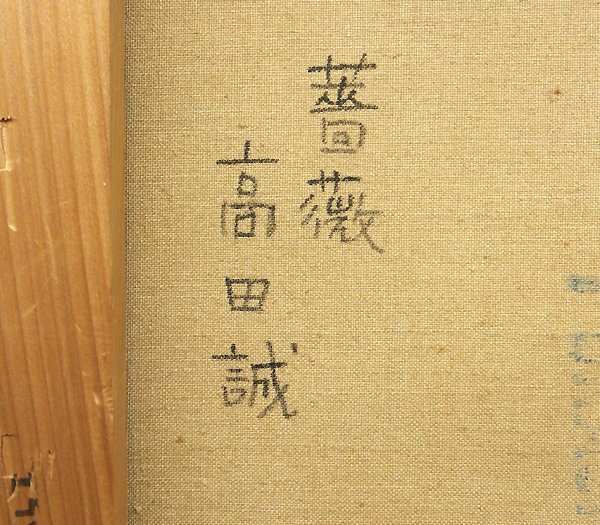 薔薇
高田誠